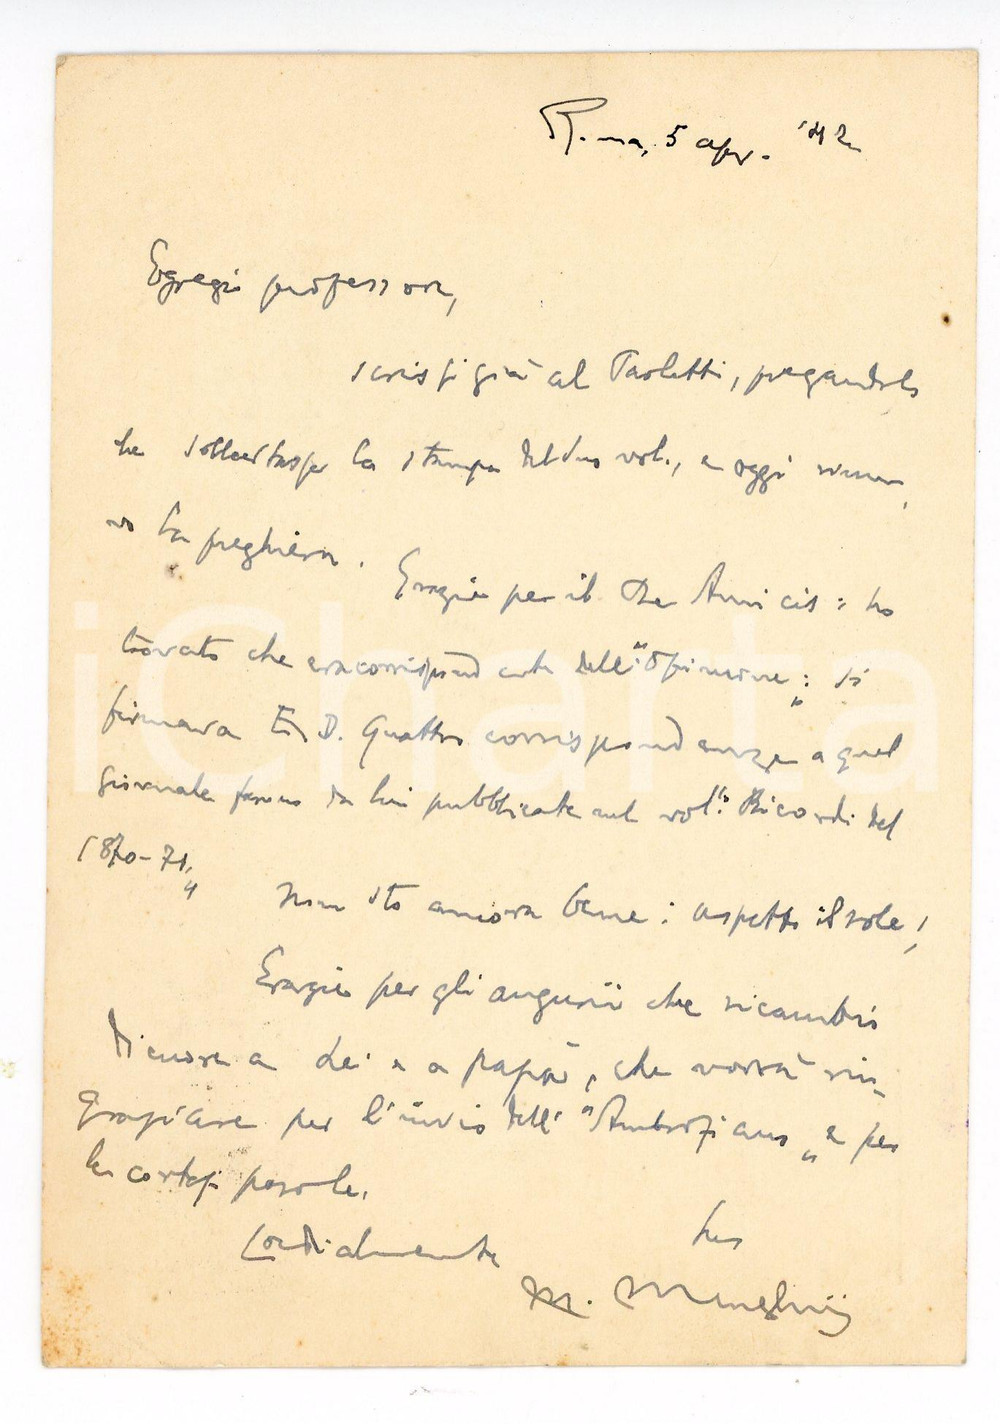 Roma, 5 apr. '42
Egregio professore,
scrissi già al Paoletti, pregandolo
che sollecitasse la stampa del suo vol., e oggi rinno-
vo la preghiera. Grazie per il De Amicis: ho
trovato che era corrispondente dell'"Opinione": si
firmava E. D. Quattro corrispondenze a quel
giornale furono da lui pubblicate nel vol. "Ricordi del
1870-71".
Non sto ancora bene: aspetto il sole!
Grazie per gli augurii che ricambio
di cuore a Lei e a papà, che vorrà rin-
graziare per l'invio dell'"Ambrosiano" e per
le cortesi parole.
Cordialmente suo
M. Menghini
iCharta